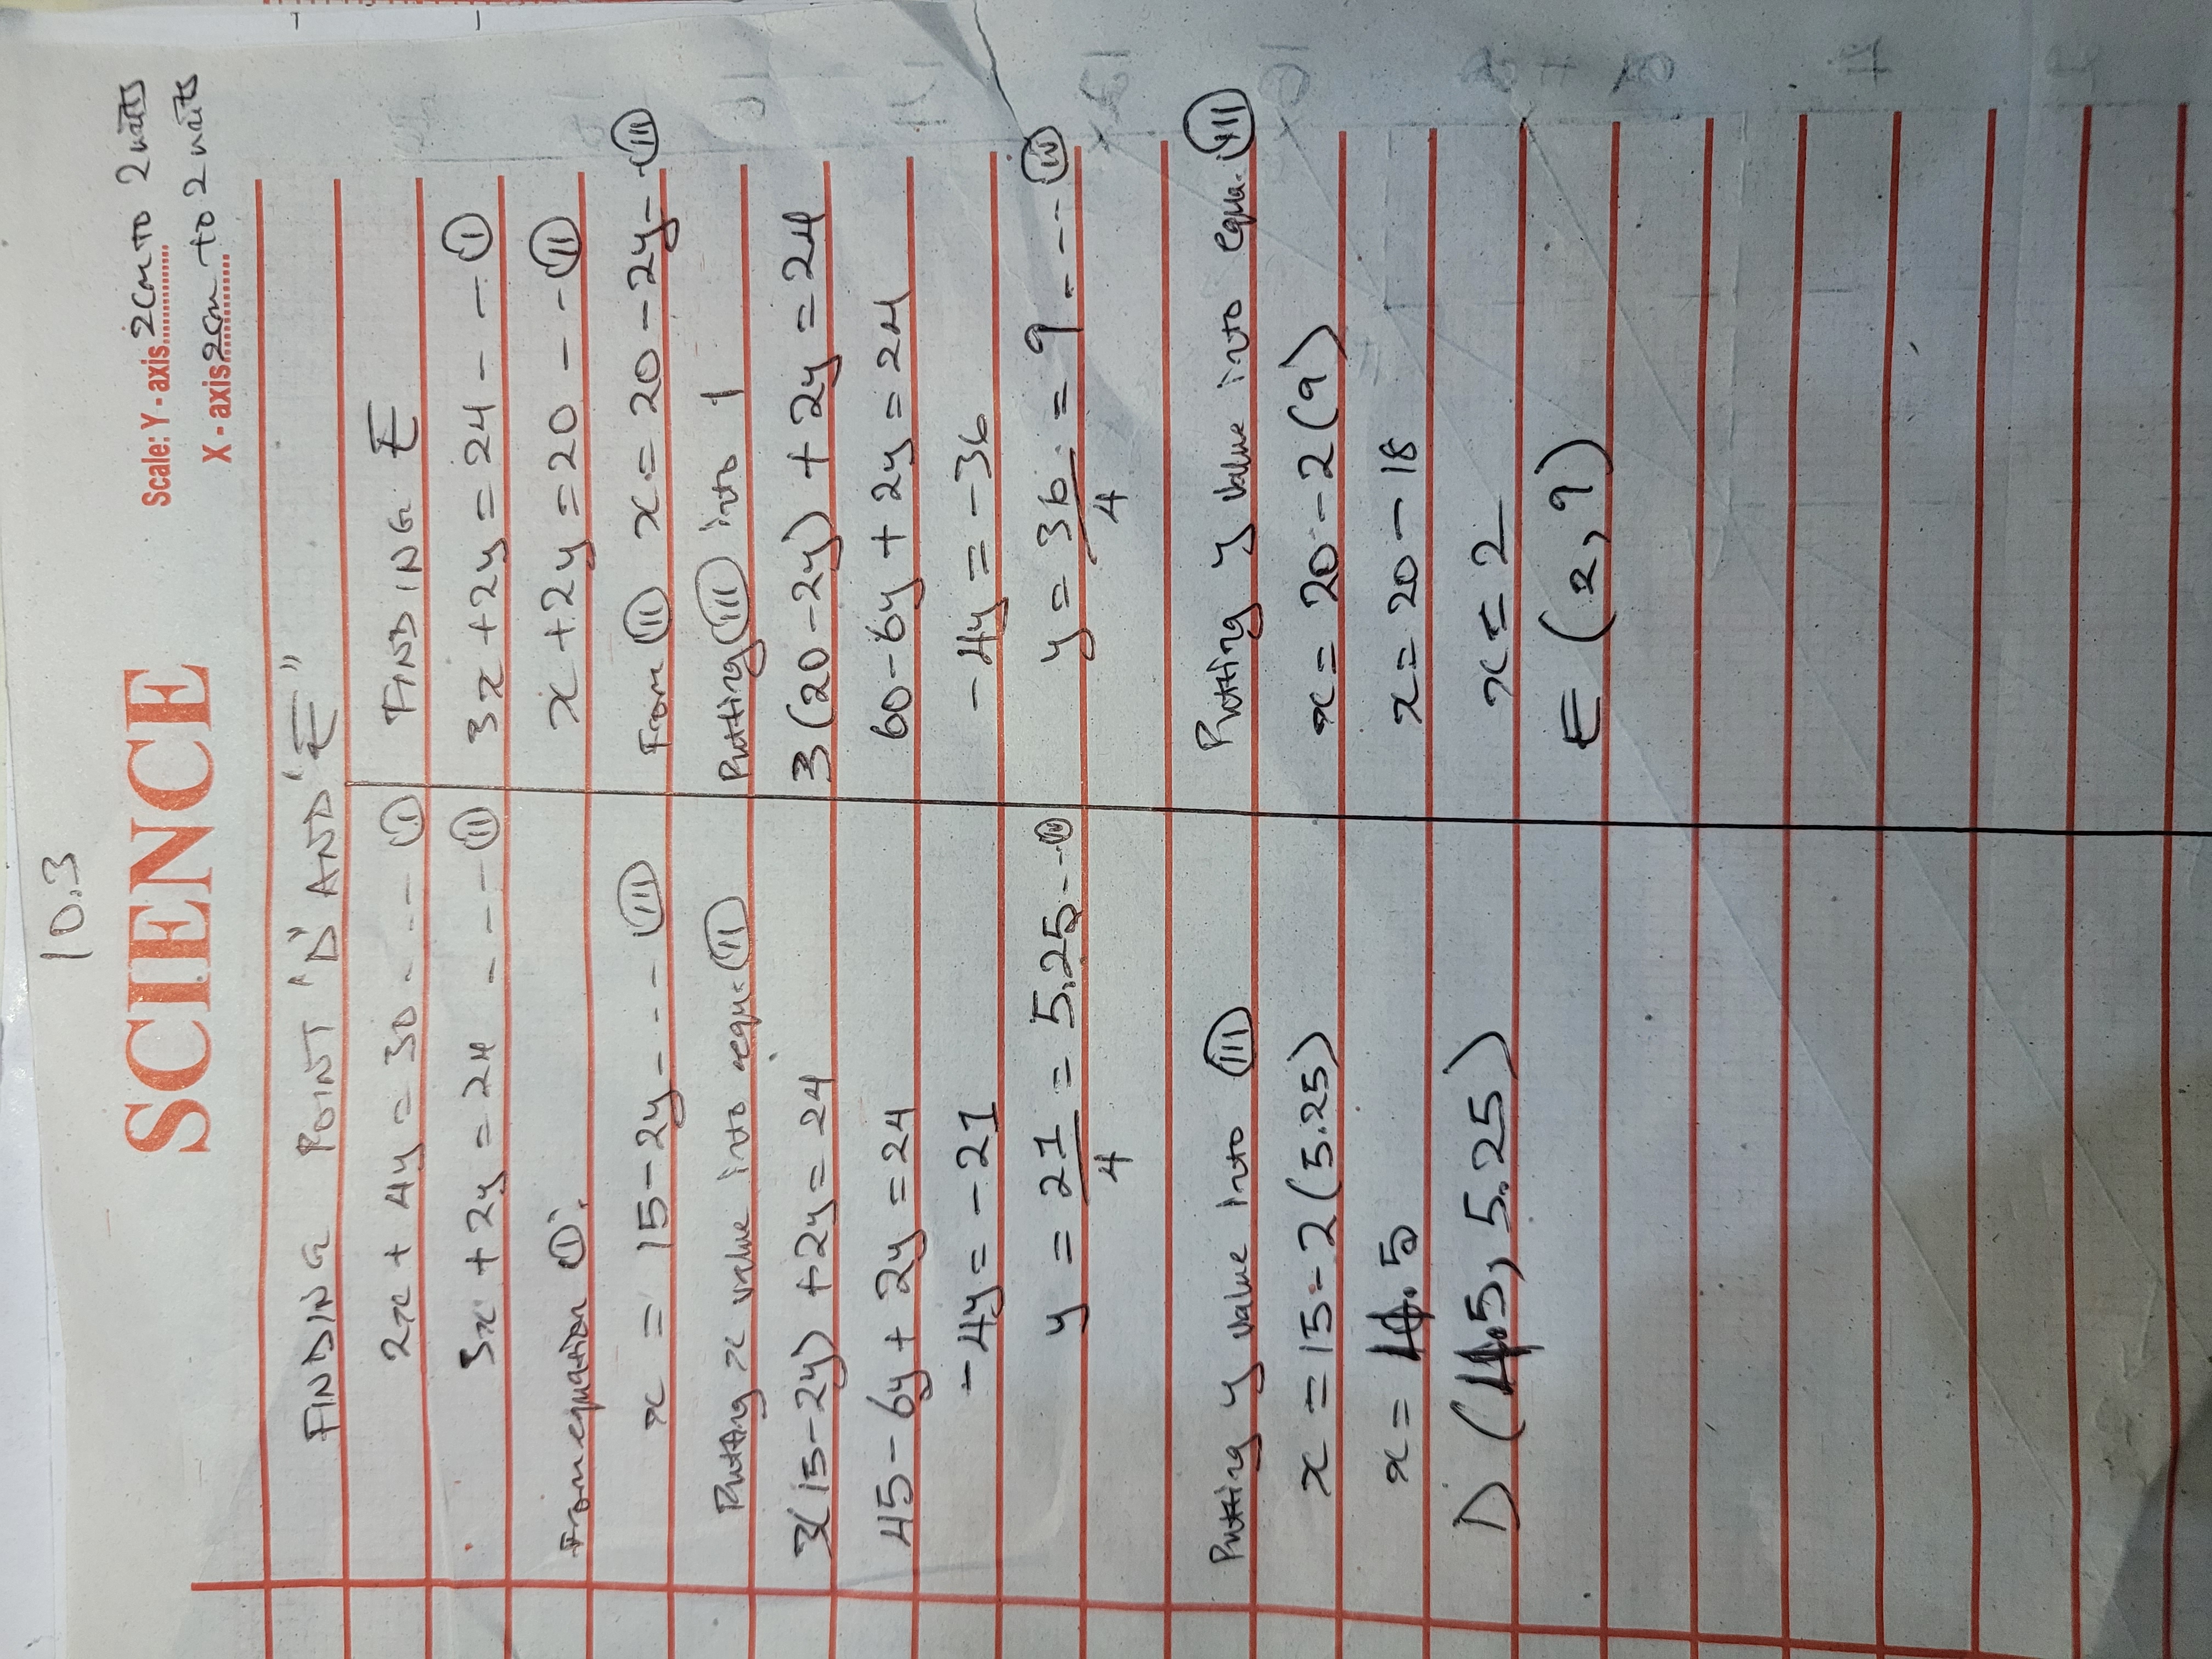 10.3
SCIENCE
Scale: Y - axis 2cm to 2 units
X - axis 2cm to 2 units
FINDING POINT "D" AND "E"
2x + 4y = 30 - - -- (I)
3x + 2y = 24 - - - - (II)
From equation (I):
x = 15 - 2y - - -- (III)
Putting x value into equ. (II)
3(15-2y) + 2y = 24
45 - 6y + 2y = 24
-4y = -21
y = 21/4 = 5.25 - -- (IV)
Putting y value into (III)
x = 15 - 2(5.25)
x = 4.5
D (4.5, 5.25)
FINDING E
3x + 2y = 24 - - - (I)
x + 2y = 20 - - - (II)
From (II) x = 20 - 2y - - (III)
Putting (III) into 1
3(20-2y) + 2y = 24
60 - 6y + 2y = 24
-4y = -36
y = 36/4 = 9 - - -- (IV)
Putting y value into equa. (III)
x = 20 - 2(9)
x = 20 - 18
x = 2
E (2, 9)